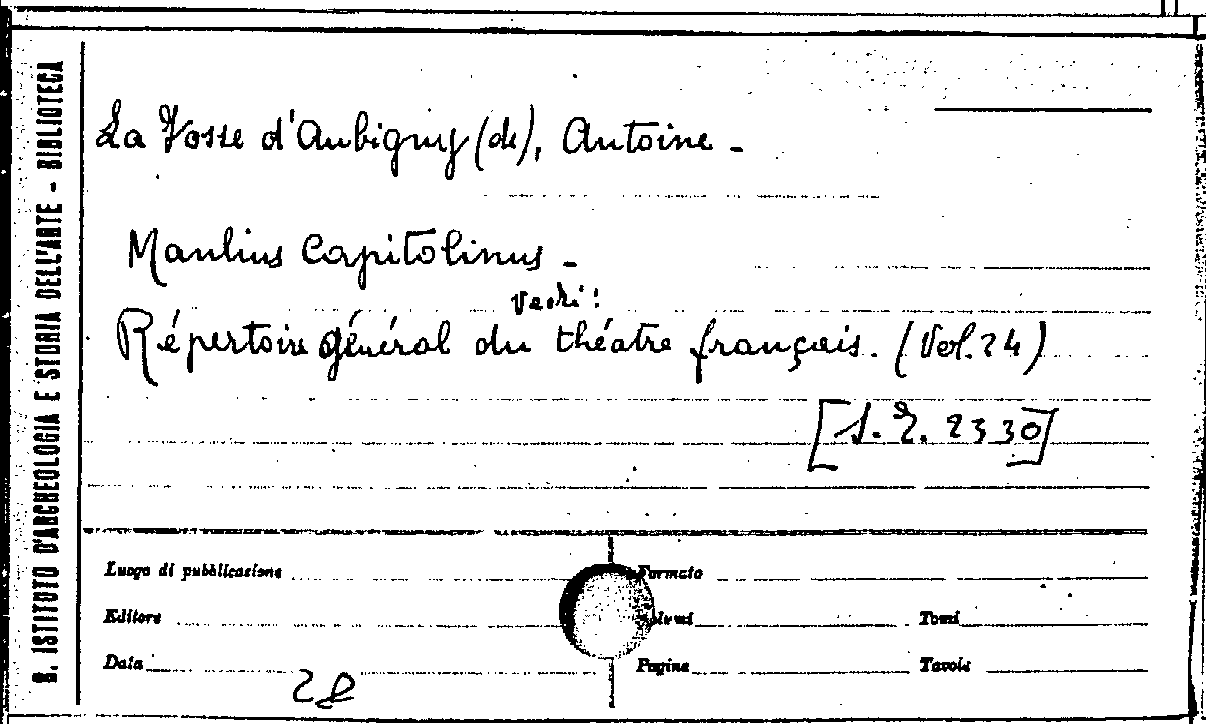 R. ISTITUTO D'ARCHEOLOGIA E STORIA DELL'ARTE - BIBLIOTECA
La Fosse d'Aubigny (de), Antoine -
Manlius Capitolinus -
vedi:
Répertoire général du théatre français. (Vol. 24)
2330]
Luogo di pubblicazione
Formato
Editore
Volumi
Tomi
Data
Pagine
Tavole
28